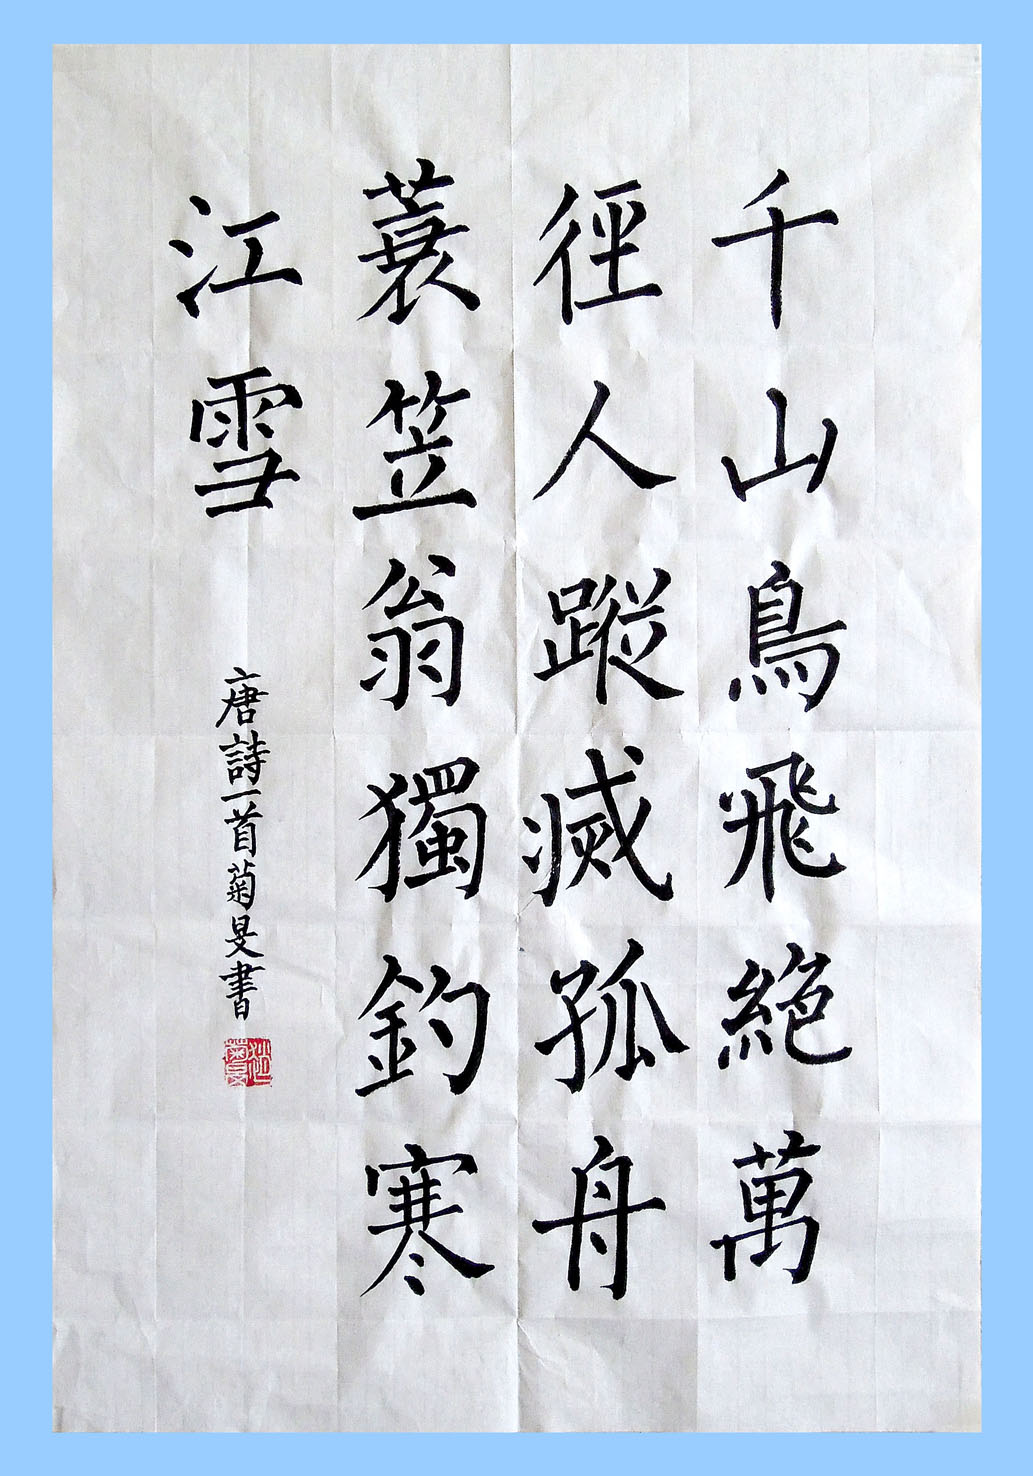 千山鳥飛絶萬
徑人蹤滅孤舟
蓑笠翁獨釣寒
江雪
唐詩一首菊旻書